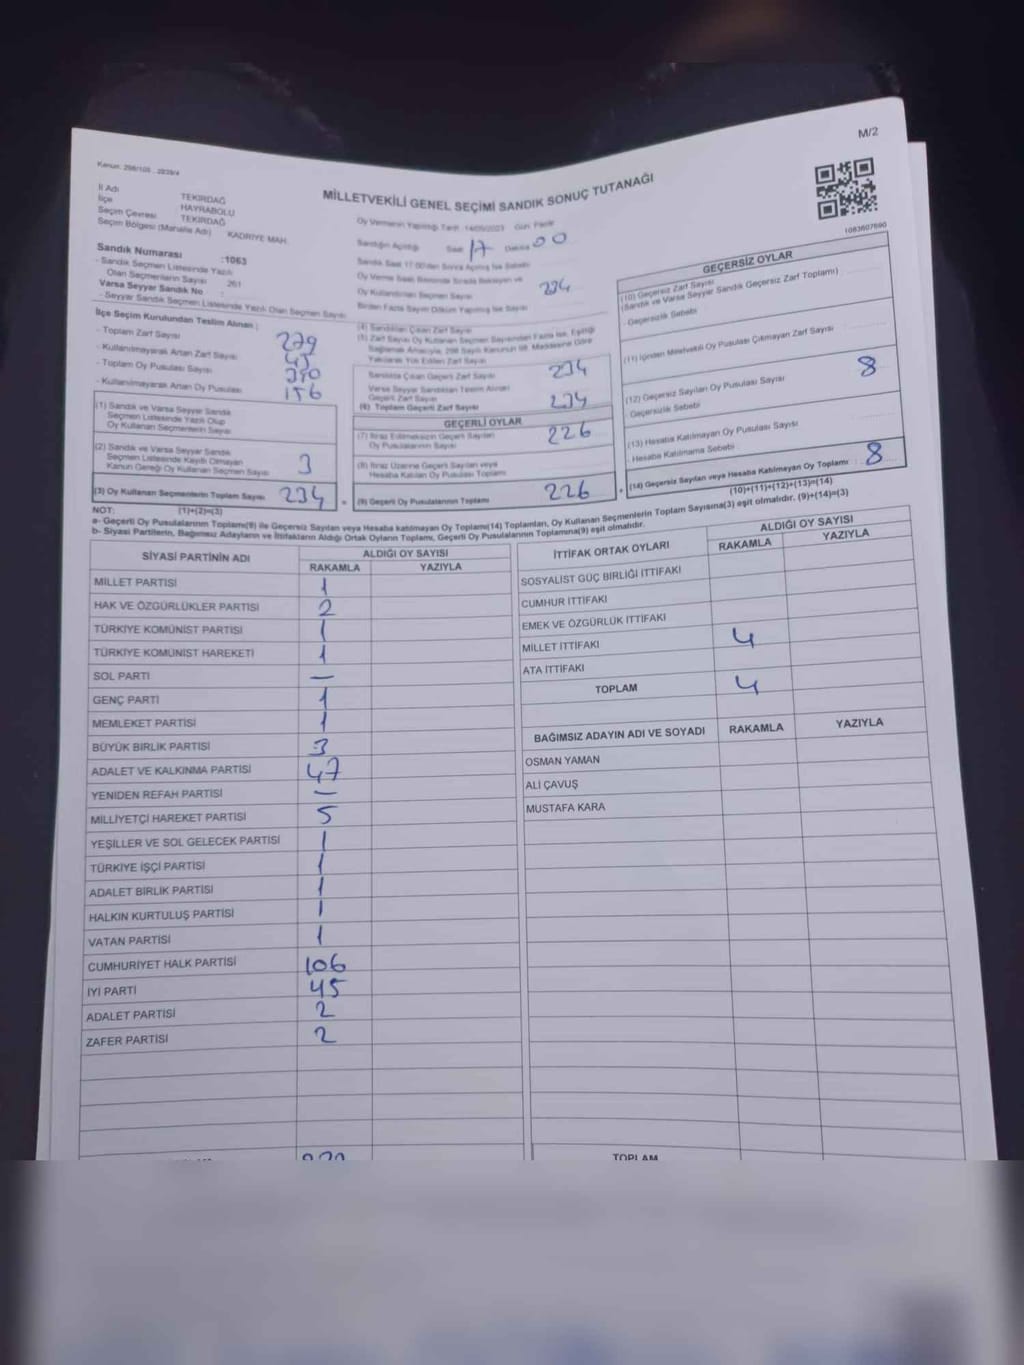 M/2
MİLLETVEKİLİ GENEL SEÇİMİ SANDIK SONUÇ TUTANAĞI
1083607690
İl Adı TEKİRDAĞ
İlçe HAYRABOLU
Seçim Çevresi TEKİRDAĞ
Seçim Bölgesi (Mahalle Adı) KADRİYE MAH.
Sandık Numarası :1063
- Sandık Seçmen Listesinde Yazılı
Olan Seçmenlerin Sayısı 261
Varsa Seyyar Sandık No :
- Seyyar Sandık Seçmen Listesinde Yazılı Olan Seçmen Sayısı
İlçe Seçim Kurulundan Teslim Alınan :
- Toplam Zarf Sayısı 279
- Kullanılmayarak Artan Zarf Sayısı 45
- Toplam Oy Pusulası Sayısı 390
- Kullanılmayarak Artan Oy Pusulası 156
(1) Sandık ve Varsa Seyyar Sandık
Seçmen Listesinde Yazılı Olup
Oy Kullanan Seçmenlerin Sayısı
(2) Sandık ve Varsa Seyyar Sandık
Seçmen Listesinde Kaydı Olmayan
Kanun Gereği Oy Kullanan Seçmen Sayısı 3
(3) Oy Kullanan Seçmenlerin Toplam Sayısı 234
(1)+(2)=(3)
Oy Vermenin Yapıldığı Tarih 14/05/2023 Gün Pazar
Sandığın Açıldığı Saat 17 Dakika 00
Oy Kullandıran Seçmen Sayısı 234
(4) Sandıktan Çıkan Zarf Sayısı
Sandıkta Çıkan Geçerli Zarf Sayısı 234
Varsa Seyyar Sandıktan Teslim Alınan
Geçerli Zarf Sayısı
(6) Toplam Geçerli Zarf Sayısı 234
GEÇERLİ OYLAR
(7) İtiraz Edilmeksizin Geçerli Sayılan
Oy Pusulalarının Sayısı 226
(8) İtiraz Üzerine Geçerli Sayılan veya
Hesaba Katılan Oy Pusulası Toplamı
= (9) Geçerli Oy Pusulalarının Toplamı 226
GEÇERSİZ OYLAR
(10) Geçersiz Zarf Sayısı
(Sandık ve Varsa Seyyar Sandık Geçersiz Zarf Toplamı)
- Geçersizlik Sebebi
(11) İçinden Milletvekili Oy Pusulası Çıkmayan Zarf Sayısı
(12) Geçersiz Sayılan Oy Pusulası Sayısı 8
- Geçersizlik Sebebi
(13) Hesaba Katılmayan Oy Pusulası Sayısı
- Hesaba Katılmama Sebebi
+ (14) Geçersiz Sayılan veya Hesaba Katılmayan Oy Toplamı 8
(10)+(11)+(12)+(13)=(14)
NOT:
a- Geçerli Oy Pusulalarının Toplamı(9) ile Geçersiz Sayılan veya Hesaba katılmayan Oy Toplamı(14) Toplamları, Oy Kullanan Seçmenlerin Toplam Sayısına(3) eşit olmalıdır. (9)+(14)=(3)
b- Siyasi Partilerin, Bağımsız Adayların ve İttifakların Aldığı Ortak Oyların Toplamı, Geçerli Oy Pusulalarının Toplamına(9) eşit olmalıdır.
SİYASİ PARTİNİN ADI ALDIĞI OY SAYISI
RAKAMLA YAZIYLA
MİLLET PARTİSİ 1
HAK VE ÖZGÜRLÜKLER PARTİSİ 2
TÜRKİYE KOMÜNİST PARTİSİ 1
TÜRKİYE KOMÜNİST HAREKETİ 1
SOL PARTİ —
GENÇ PARTİ 1
MEMLEKET PARTİSİ 1
BÜYÜK BİRLİK PARTİSİ 3
ADALET VE KALKINMA PARTİSİ 47
YENİDEN REFAH PARTİSİ —
MİLLİYETÇİ HAREKET PARTİSİ 5
YEŞİLLER VE SOL GELECEK PARTİSİ 1
TÜRKİYE İŞÇİ PARTİSİ 1
ADALET BİRLİK PARTİSİ 1
HALKIN KURTULUŞ PARTİSİ 1
VATAN PARTİSİ 1
CUMHURİYET HALK PARTİSİ 106
İYİ PARTİ 45
ADALET PARTİSİ 2
ZAFER PARTİSİ 2
İTTİFAK ORTAK OYLARI ALDIĞI OY SAYISI
RAKAMLA YAZIYLA
SOSYALİST GÜÇ BİRLİĞİ İTTİFAKI
CUMHUR İTTİFAKI
EMEK VE ÖZGÜRLÜK İTTİFAKI
MİLLET İTTİFAKI 4
ATA İTTİFAKI
TOPLAM 4
BAĞIMSIZ ADAYIN ADI VE SOYADI RAKAMLA YAZIYLA
OSMAN YAMAN
ALİ ÇAVUŞ
MUSTAFA KARA
TOPLAM